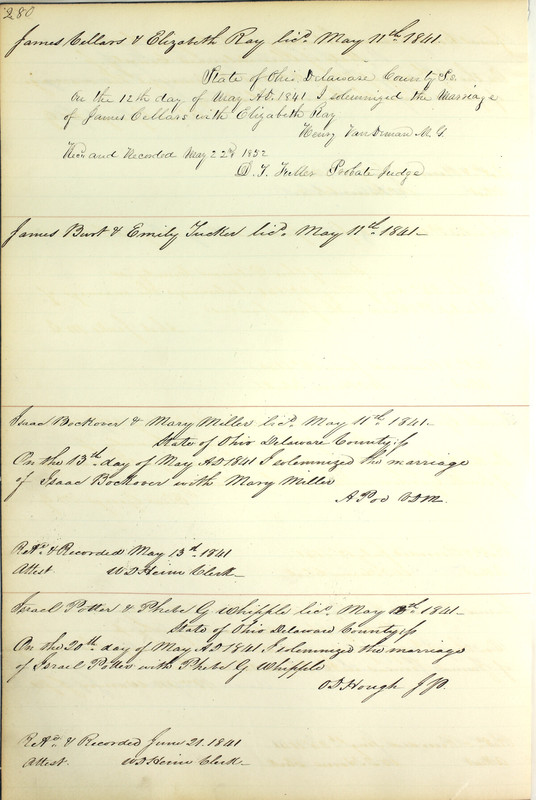 280
James Cellars & Elizabeth Ray licd. May 11th. 1841.
State of Ohio Delaware County Ss.
On the 12th day of May A.D. 1841 I solemnized the Marriage
of James Cellars with Elizabeth Ray
Henry Van Deman M. G.
and Recorded May 22d 1852
D. T. Fuller Probate Judge
James Burt & Emily Tucker licd. May 11th. 1841.
Isaac Bockover & Mary Miller licd. May 11th. 1841.
State of Ohio Delaware County ss
On the 13th. day of May AD 1841 I solemnized the marriage
of Isaac Bockover with Mary Miller
A Poe VDM.
Retd. & Recorded May 13th. 1841
Attest W D Heim Clerk
Israel Potter & Phebe G Whipple licd. May 1841.
State of Ohio Delaware County ss
On the 20th. day of May AD 1841 I solemnized the marriage
of Israel Potter with Phebe G. Whipple
O D Hough J.P.
Retd. & Recorded June 21. 1841
Attest. W D Heim Clerk